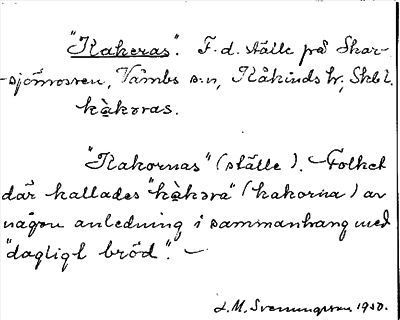 "Kakeras". F.d. ställe på Skar-
-sjömossen, Vämbs s:n, Kåkinds hr, Skbl.
kàkəras.
"Kakornas" (ställe). Folket
där kallades "kàkəra" (kakorna) av
någon anledning i sammanhang med
"dagligt bröd". —
L.M. Svenungsson 1950.